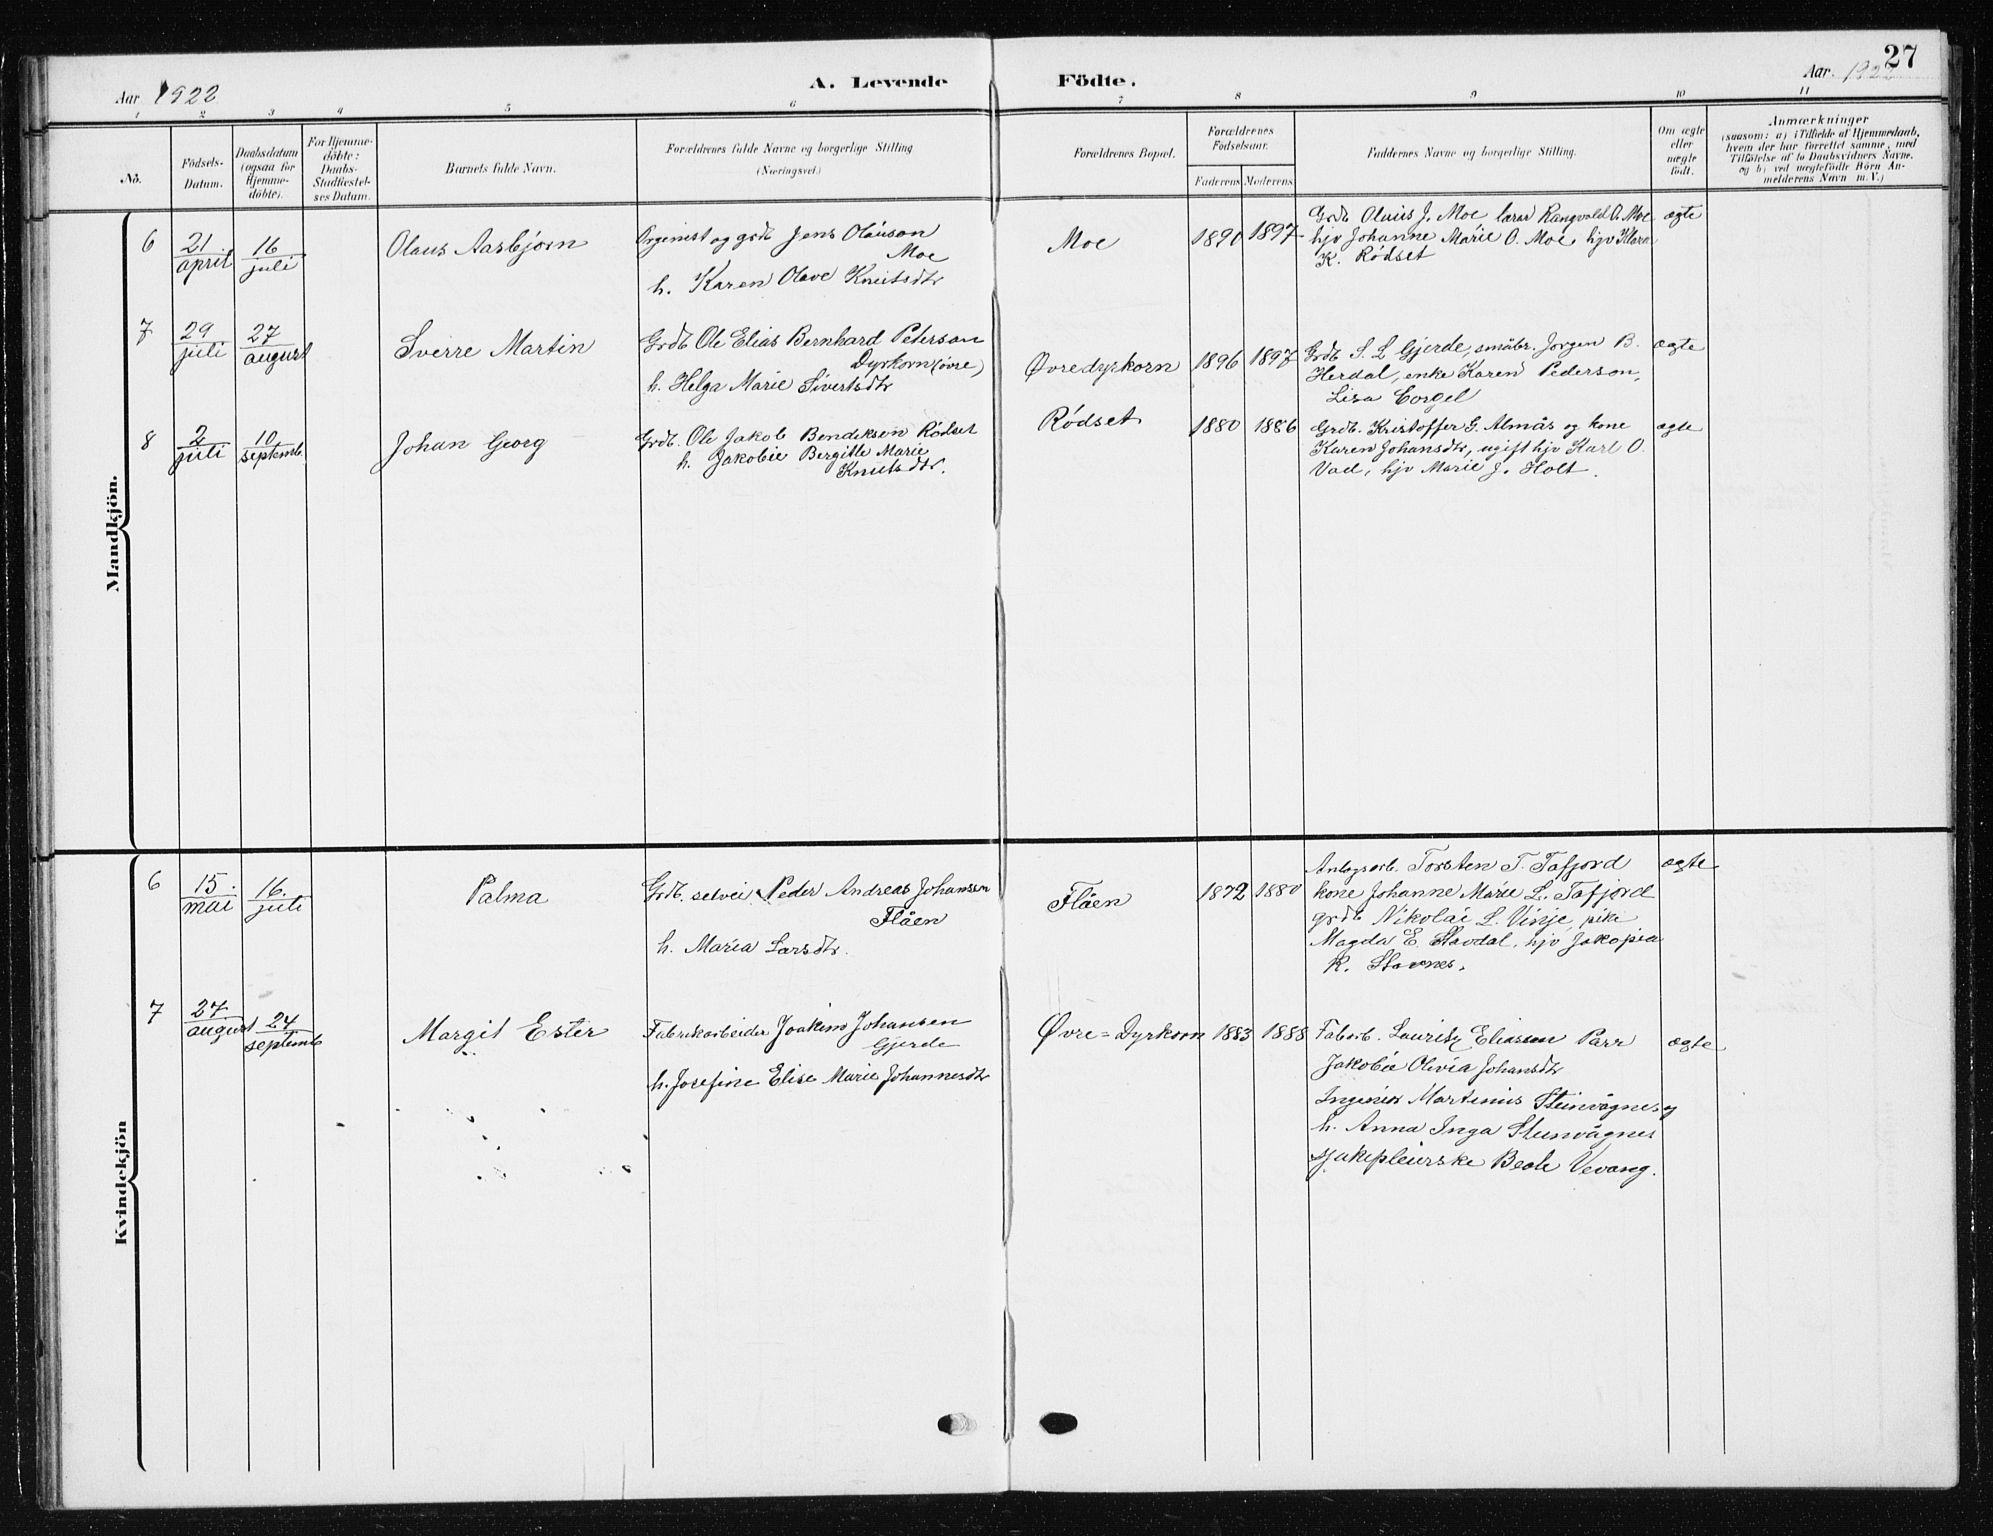 27
Aar 1922
A. Levende
Födte.
Aar 1922
1 2 3 4 5 6 7 8 9 10 11
No.
Födsels-
Datum.
Daabsdatum
(ogsaa for
Hjemme-
döbte).
For Hjemme-
döbte:
Daabs-
Stadfæstel-
ses Datum.
Barnets fulde Navn.
Forældrenes fulde Navne og borgerlige Stilling
(Næringsvei.)
Forældrenes Bopæl.
Forældrenes
Födselsaar.
Faderens
Moderens
Faddernes Navne og borgerlige Stilling.
Om ægte
eller
uægte
födt.
Anmærkninger
(saasom: a) i Tilfælde af Hjemmedaab,
hvem der har forrettet samme, med
Tilföielse af to Daabsvidners Navne.
og b) ved uægtefödte Börn An-
melderens Navn m. V.)
Mandkjön.
6
21
april
16
juli
Olaus Aasbjørn
Orgenist og grdb Jens Olauson
Moe
h. Karen Olave Knutsdtr
Moe
1890
1897
Grdb Olaus J. Moe lærar Rangvald O. Moe
hjv Johanne Marie O. Moe, hjv Klara
K. Rødset
ægte
7
29
juli
27
august
Sverre Martin
Grdb Ole Elias Bernhard Peterson
Dyrkorn (øvre)
h. Helga Marie Sivertsdtr
Øvredyrkorn
1896
1897
Grdb S. L Gjerde, småbr. Jørgen B.
Herdal, enke Karen Pederson,
Lisa Gorgel
ægte
8
2
juli
10
septemb.
Johan Georg
Grdb. Ole Jakob Bendiksen Rødset
h. Jakobie Bergitte Marie
Knutsdtr.
Rødset
1880
1886
Grdb. Kristoffer G. Almås og kone
Karen Johansdtr, ugift hjv Karl O.
Vad, hjv Marie J. Holt.
ægte
Kvindekjön
6
15.
mai
16.
juli
Palma
Grdb. selvei Peder Andreas Johansen
Flåen
h. Maria Larsdtr.
Flåen
1872
1880
Anlegsarb. Torsten T. Tafjord
kone Johanne Marie L. Tafjord
grdb Nikolai L. Vinje, pike
Magda E. Stavdal, hjv Jakopia
K. Stavnes.
ægte
7
27
august
24
septemb
Margit Ester
Fabrikarbeider Joakim Johansen
Gjerde
h. Josefine Elise Marie Johannesdtr
Øvre=Dyrkorn
1883
1888
Fabarb. Lauritz Eliassen Parr
Jakobie Olivia Johansdtr
Ingeniør Martinius Steinvågnes og
h. Anna Inga Steinvågnes
sjukepleierske Beate Vevang.
ægte